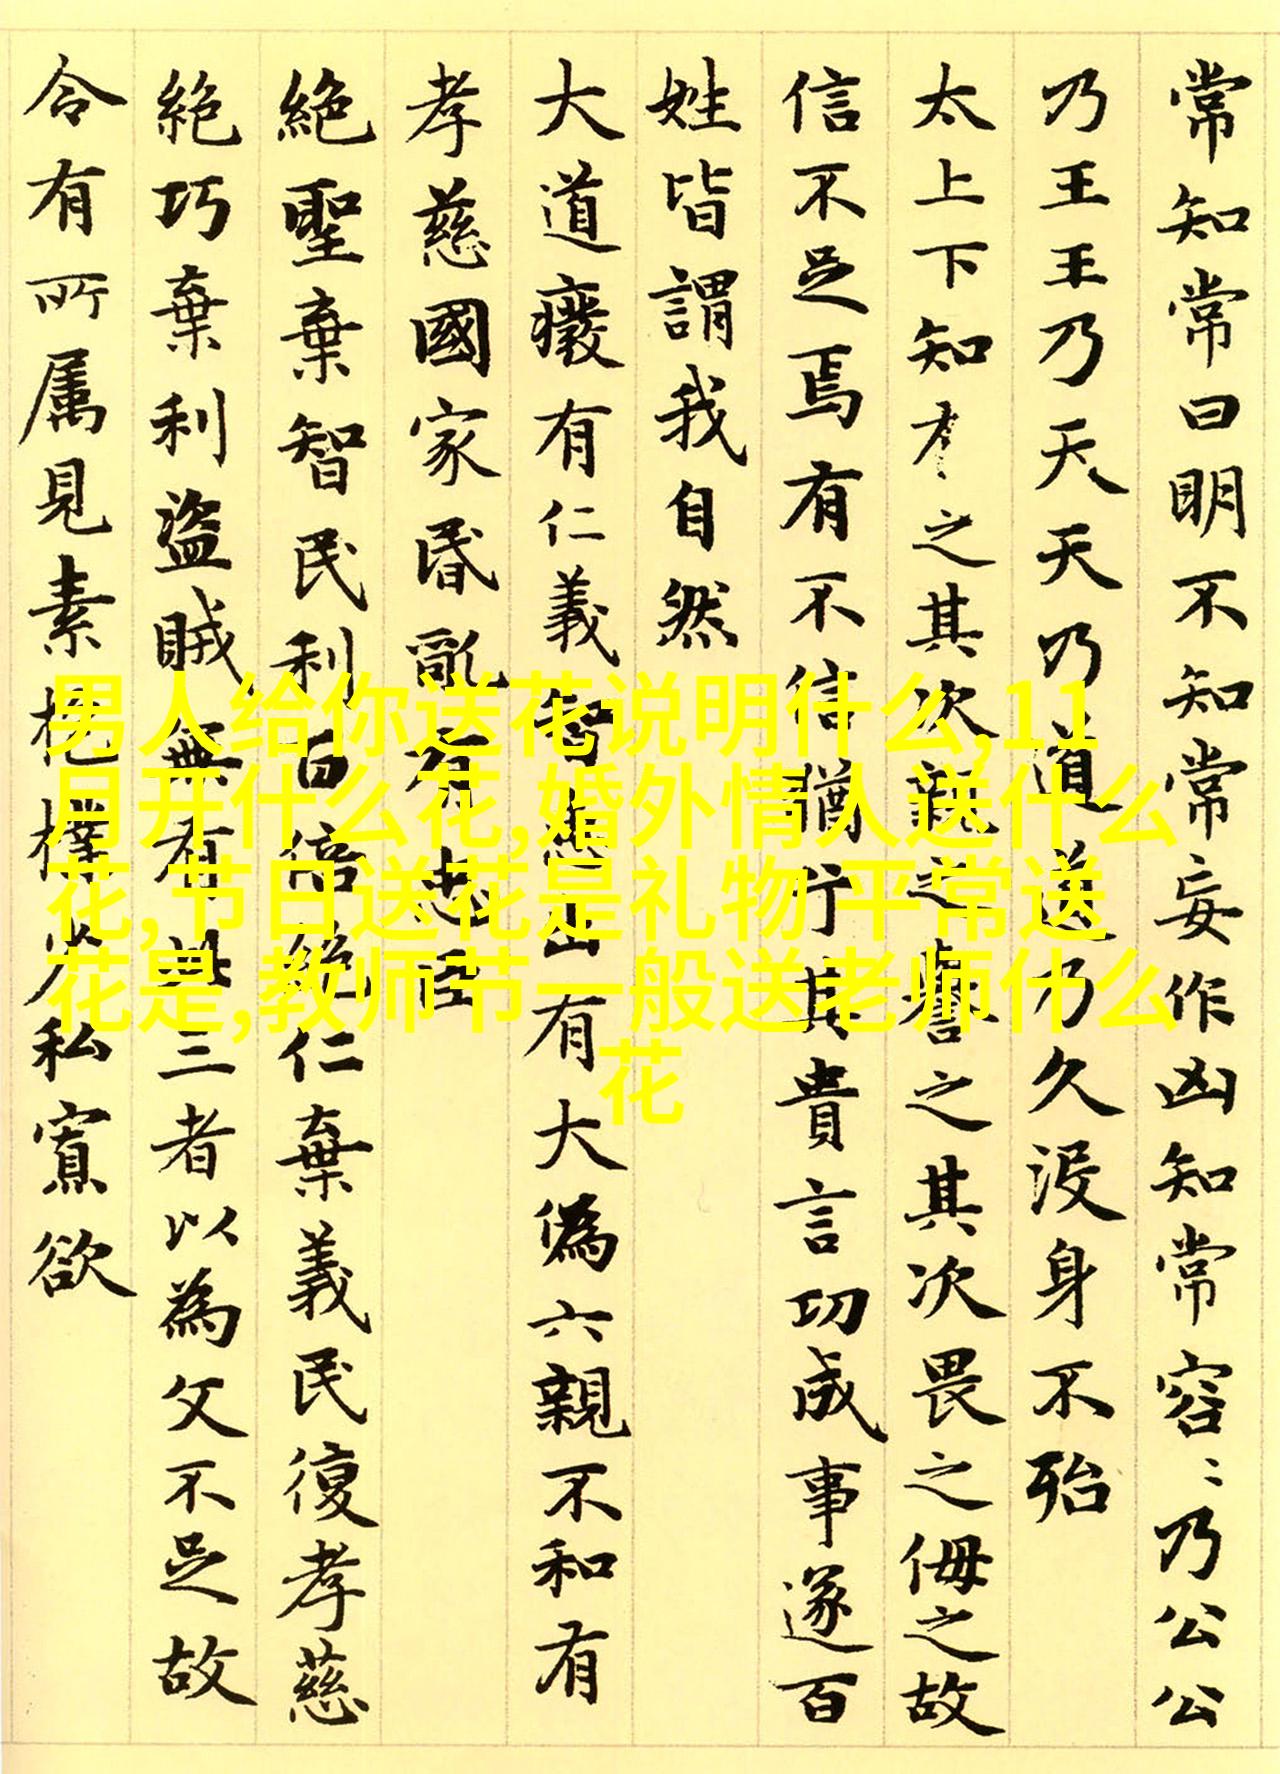 常知常曰明不知常妄作凶知常容〻乃公公
乃王王乃天天乃道道乃久没身不殆
太上下知有之其次親之譽之其次畏之侮之故
信不足焉有不信猶其貴言功成事遂百
姓皆謂我自然
大道癈有仁義智慧出有大偽六親不和有
孝慈國家昬亂有忠臣
絶聖棄智民利百倍絶仁棄義民復孝慈
絶巧棄利盗賊無有此三者以為文不足故
令有所属見素抱樸少私寡欲
男人给你送花说明什么,11
月开什么花,婚外情人送什么
花,节日送花是礼物,平常送
花是,教师节一般送老师什么
花